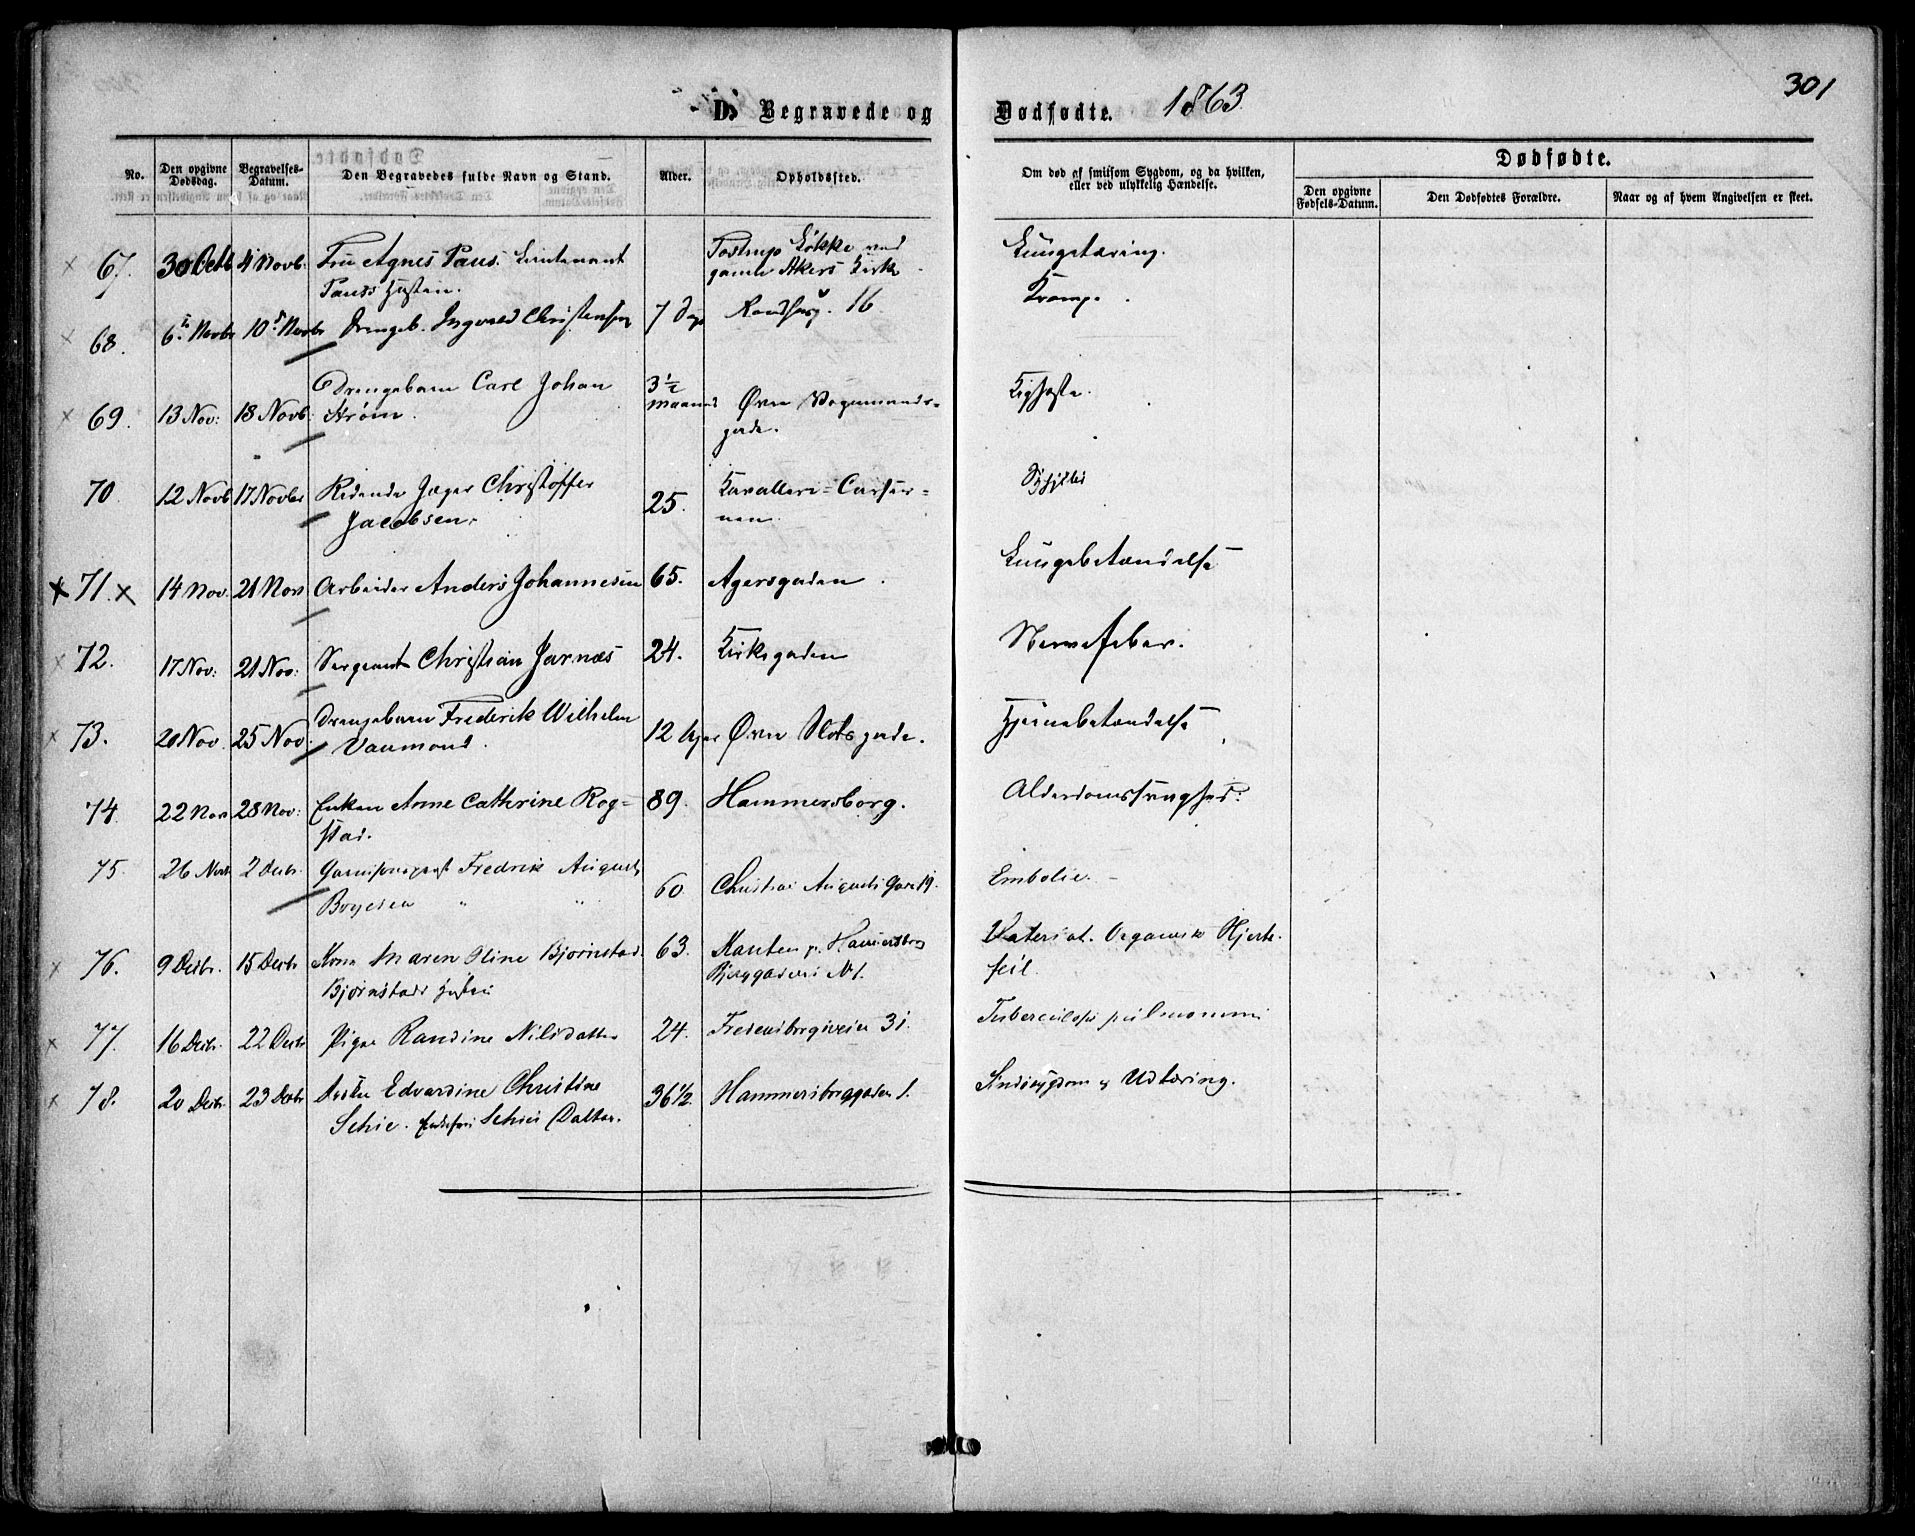 301
D. Begravede og Dødfødte. 1863
No. Den opgivne Dødsdag. Begravelses-Datum. Den Begravedes fulde Navn og Stand. Alder. Opholdssted. Om død af smitsom Sygdom, og da hvilken, eller ved ulykkelig Hændelse. Dødfødte.
Den opgivne Fødsels-Datum. Den Dødfødtes Forældre. Naar og af hvem Angivelsen er skeet.
67. 30 Octb 4 Novb. Fru Agnes Paus. Lieutenant Tostrup Løkke ved Lungetæring.
Paus's Hustru. gamle Akers Kirke
68. 6te Novbr 10de Novbr Drengeb. Ingvald Christensen 7 Dage 16 Krampe.
69. 13 Nov: 18 Novb. Drengebarn Carl Johan 3½ Maaned Øvre Vognmands- Kighoste.
Strøm. gade.
70. 12 Novb 17 Novbr Ridende Jæger Christoffer 25. Kavalleri-Caser-
Jacobsen. nen
71. 14 Nov. 21 Nov Arbeider Anders Johannesen 65. Agersgaden. Lungebetændelse
72. 17 Nov: 21 Nov: Sergeant Christian Jarnæs 24. Kirkegaden Nervefeber.
73. 20 Nov. 25 Nov. Drengebarn Frederik Wilhelm 12 Uger Øvre Slotsgade. Hjernebetændelse
Vaumond.
74. 22 Nov 28 Nov: Enken Anne Cathrine Rog- 89. Hammersborg. Alderdomssvaghed.
stad.
75. 26 Novb 2 Decbr. Garnisonsprest Fredrik August 60 Christian Augusts Gade 19. Embolie.
Boyesen " "
76. 9 Decbr. 15 Decbr Kone Maren Oline Bjørnstad. 63. Hammersborg Organisk Hjerte-
Bjørnstads Hustru Bjerggaden No 1. feil.
77. 16 Decbr. 22 Decbr Pige Randine Nilsdatter 24. Fredensborgveien 31. Tuberculosis pulmonum
78. 20 Decbr. 23 Decbr Edvardine Christine 36½. Hammersborggaden 1. Sindssygdom og Udtæring.
Schie. Schies Datter.